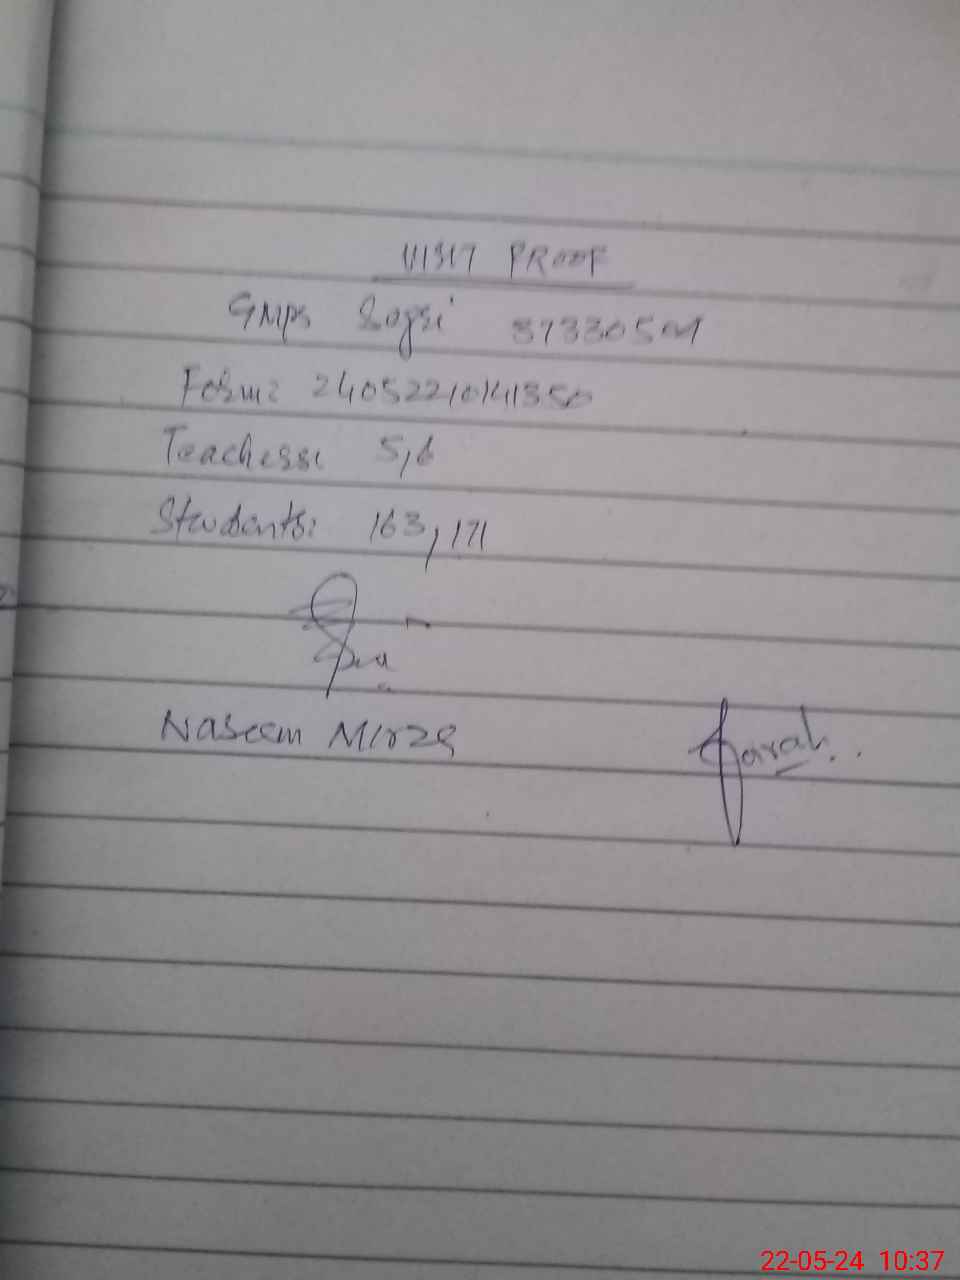 VISIT PROOF
GMPS Sogri 37330504
Form: 24052210141350
Teachers: 5,6
Students: 163, 171
Naseem Mirza
Farah.
22-05-24 10:37